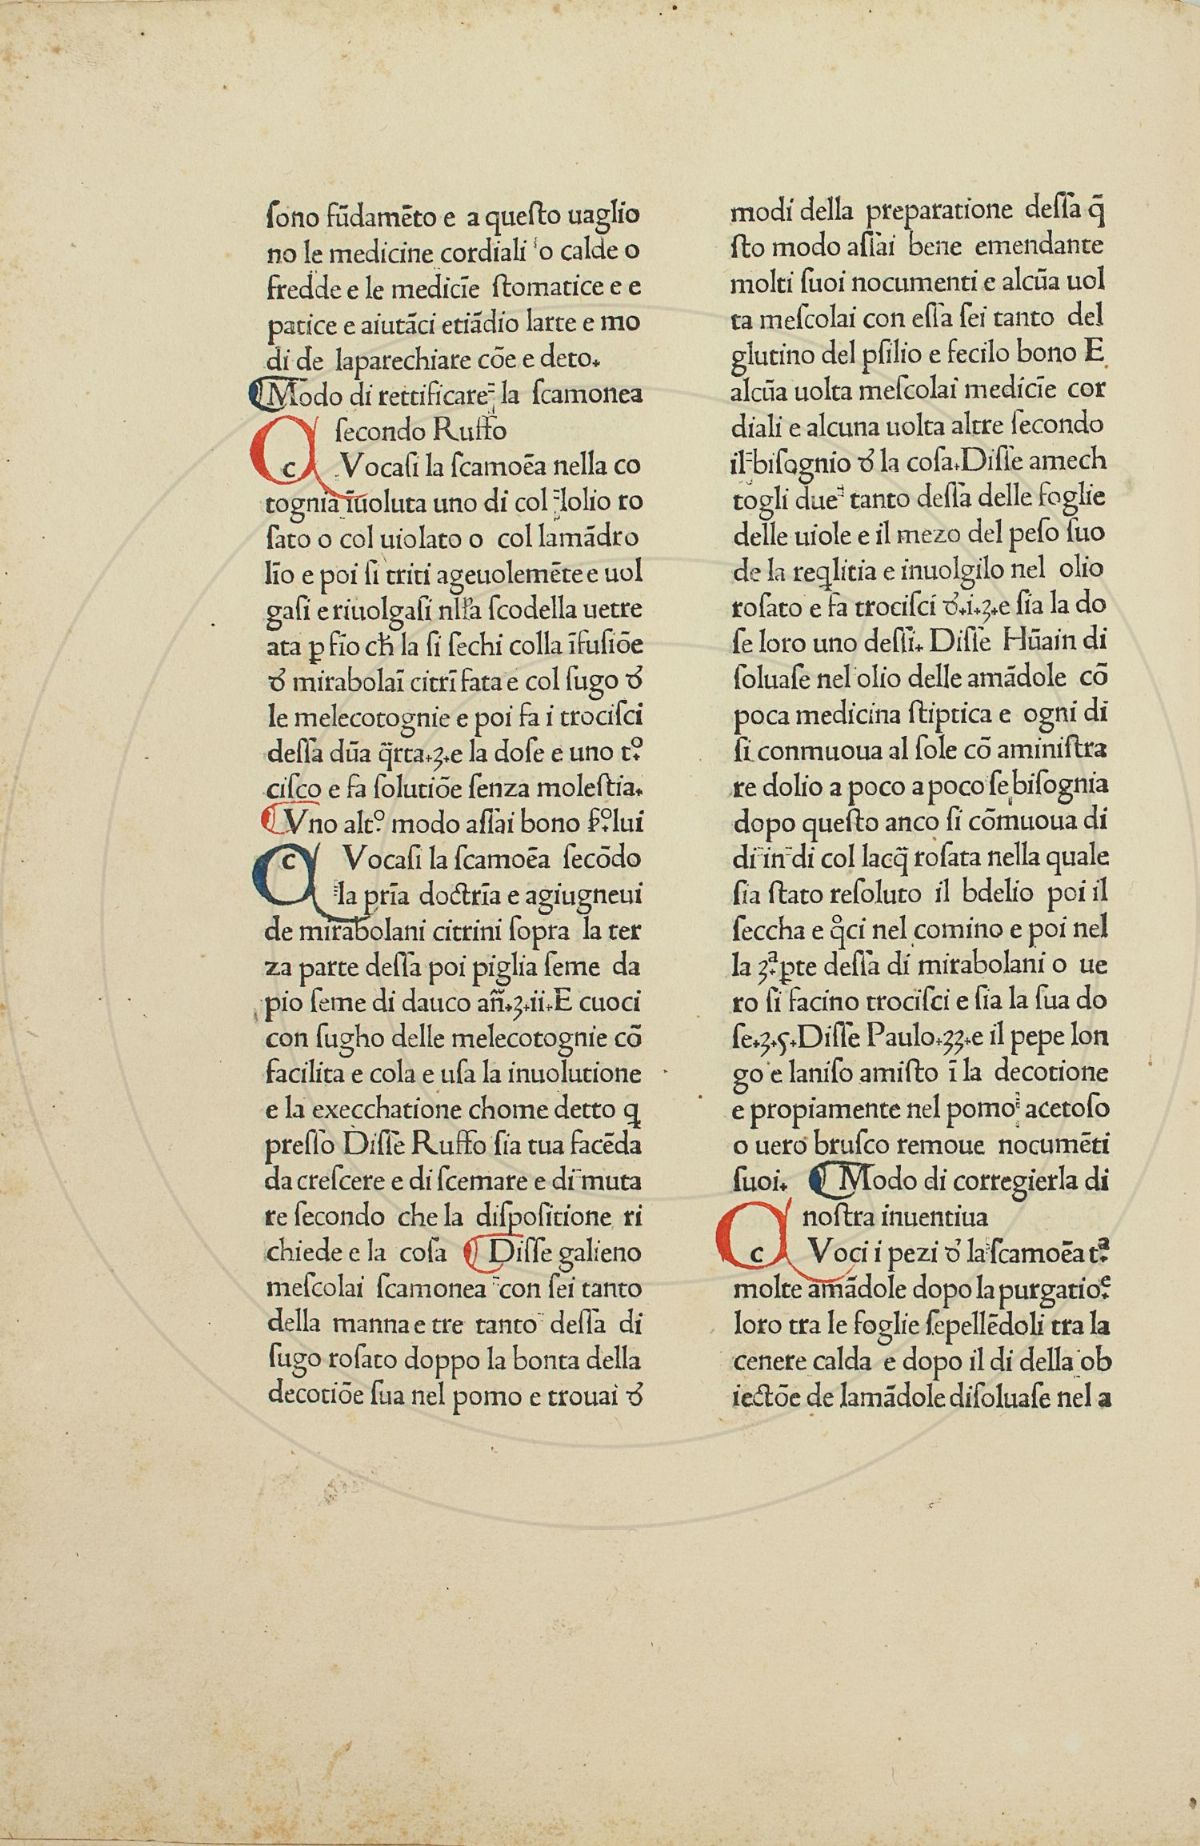 ſono fūdamēto e a queſto uaglio
no le medicine cordiali o calde o
fredde e le medicīe ſtomatice e e
patice e aiutāci etiādio larte e mo
di de laparechiare cōe e deto.
¶ Modo di rettificare la ſcamonea
ſecondo Ruffo
c Vocaſi la ſcamoēa nella co
tognia īuoluta uno di col lolio ro
ſato o col uiolato o col lamādro
līo e poi ſi triti ageuolemēte e uol
gaſi e riuolgaſi nlľa ſcodella uetre
ata ꝑ fīo cħ la ſi ſechi colla īfuſiōe
ꝺ̄ mirabolaī citrī fata e col ſugo ꝺ̄
le melecotognie e poi fa i trociſci
deſſa dūa q̄rta.ʒ.e la doſe e uno t.º
ciſco e fa ſolutiōe ſenza moleſtia.
¶ Vno alt.º modo aſſai bono ẜ.º lui
c Vocaſi la ſcamoēa ſecōdo
la prīa doctrīa e agiugneui
de mirabolani citrini ſopra la ter
za parte deſſa poi piglia ſeme da
pio ſeme di dauco an̄.ʒ.ii.E cuoci
con ſugho delle melecotognie cō
facilita e cola e uſa la inuolutione
e la execchatione chome detto q
preſſo Diſſe Ruffo ſia tua facēda
da creſcere e di ſcemare e di muta
re ſecondo che la diſpoſitione ri
chiede e la coſa ¶ Diſſe galieno
meſcolai ſcamonea con ſei tanto
della manna e tre tanto deſſa di
ſugo roſato doppo la bonta della
decotiōe ſua nel pomo e trouai ꝺ̄
modi della preparatione deſſa q̄
ſto modo aſſai bene emendante
molti ſuoi nocumenti e alcūa uol
ta meſcolai con eſſa ſei tanto del
glutino del pſilio e fecilo bono E
alcūa uolta meſcolai medicīe cor
diali e alcuna uolta altre ſecondo
il biſognio ꝺ̄ la coſa.Diſſe amech
togli due tanto deſſa delle foglie
delle uiole e il mezo del peſo ſuo
de la reqlitia e inuolgilo nel olio
roſato e fa trociſci ꝺ̄.i.ʒ.e ſia la do
ſe loro uno deſſi. Diſſe Hūain di
ſoluaſe nel olio delle amādole cō
poca medicina ſtiptica e ogni di
ſi conmuoua al ſole cō aminiſtra
re dolio a poco a poco ſe biſognia
dopo queſto anco ſi cōmuoua di
di in di col lacq̄ roſata nella quale
ſia ſtato reſoluto il bdelio poi il
ſeccha e q̊ci nel comino e poi nel
la ʒ.ª ꝑte deſſa di mirabolani o ue
ro ſi facino trociſci e ſia la ſua do
ſe.ʒ.ς.Diſſe Paulo.ʒʒ.e il pepe lon
go e laniſo amiſto ī la decotione
e propiamente nel pomo acetoſo
o uero bruſco remoue nocumēti
ſuoi. ¶ Modo di corregierla di
noſtra inuentiua
c Voci i pezi ꝺ̄ la ſcamoēa t.ª
molte amādole dopo la purgatio.ᵉ
loro tra le foglie ſepellēdoli tra la
cenere calda e dopo il di della ob
iectōe de lamādole diſoluaſe nel a